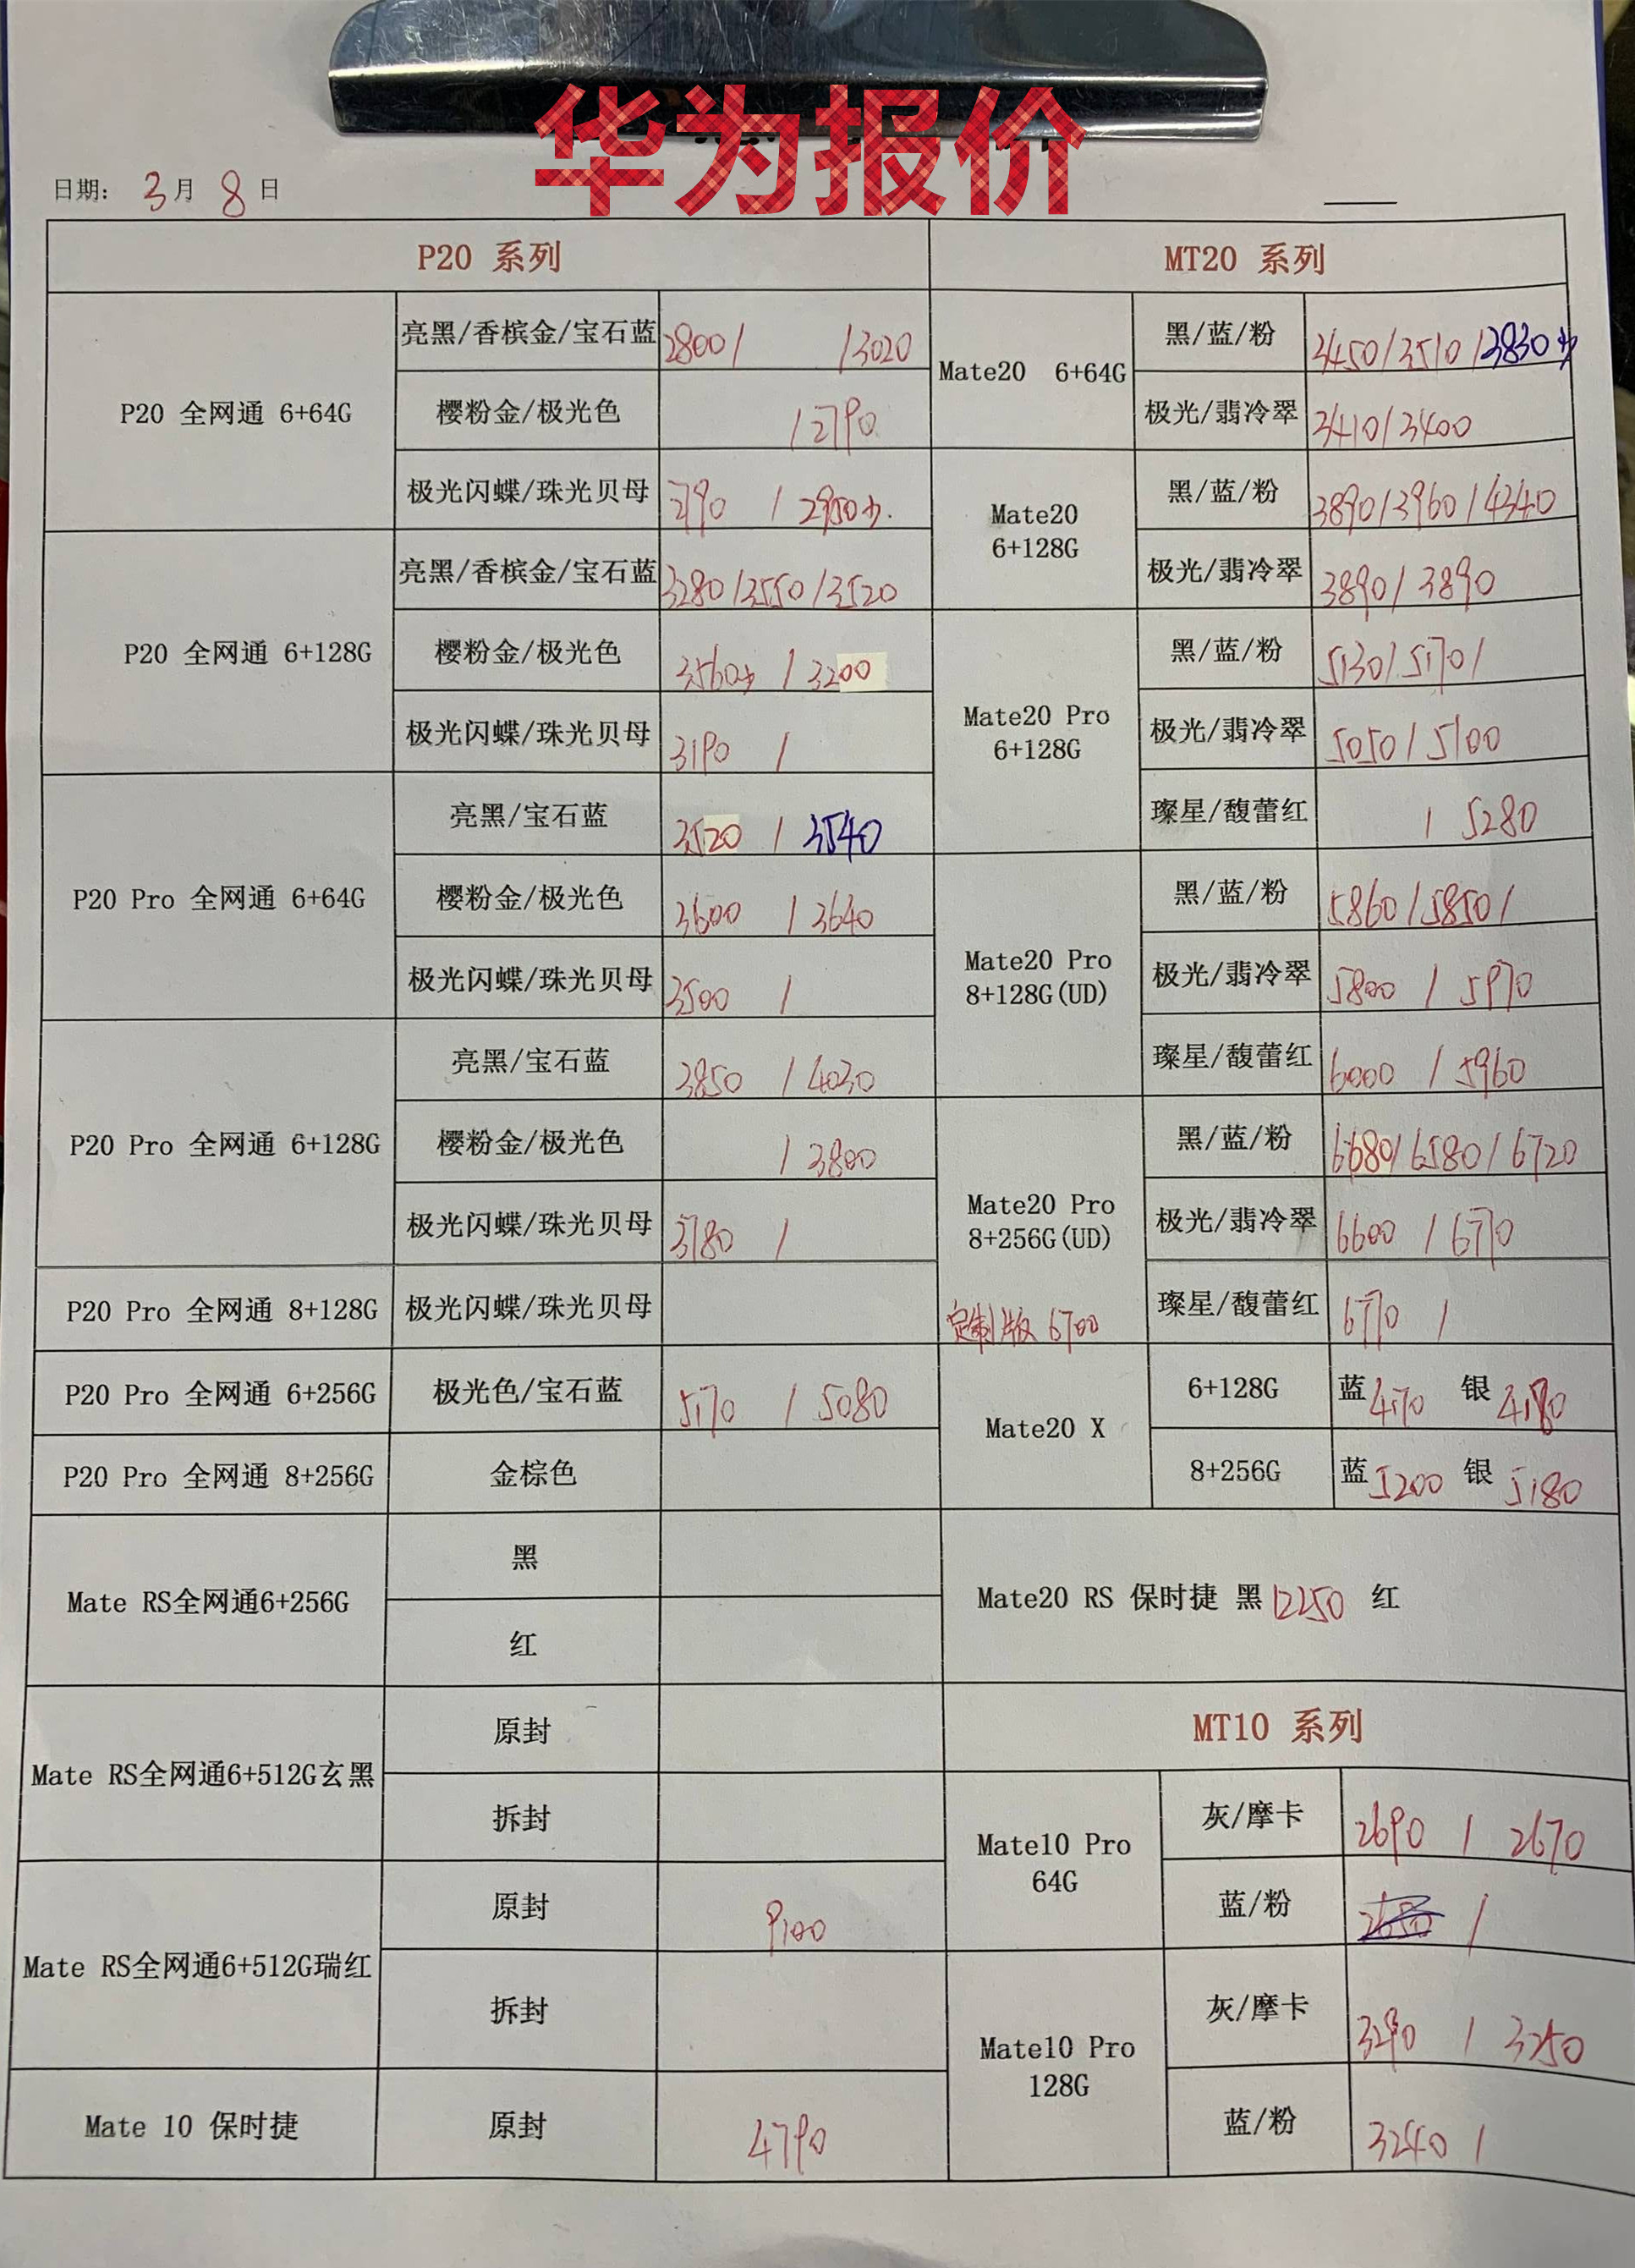 华为报价
日期: 3月 8日
P20 系列
P20 全网通 6+64G
亮黑/香槟金/宝石蓝 2800/ /3020
樱粉金/极光色 /2790
极光闪蝶/珠光贝母 2790 / 2950少.
P20 全网通 6+128G
亮黑/香槟金/宝石蓝 3280/3550/3520
樱粉金/极光色 3560少 / 3200
极光闪蝶/珠光贝母 3190 /
P20 Pro 全网通 6+64G
亮黑/宝石蓝 3520 / 3540
樱粉金/极光色 3600 / 3640
极光闪蝶/珠光贝母 3500 /
P20 Pro 全网通 6+128G
亮黑/宝石蓝 3850 / 4030
樱粉金/极光色 / 3800
极光闪蝶/珠光贝母 3780 /
P20 Pro 全网通 8+128G 极光闪蝶/珠光贝母
P20 Pro 全网通 6+256G 极光色/宝石蓝 5170 / 5080
P20 Pro 全网通 8+256G 金棕色
Mate RS全网通6+256G
黑
红
Mate RS全网通6+512G玄黑
原封
拆封
Mate RS全网通6+512G瑞红
原封 9100
拆封
Mate 10 保时捷 原封 4790
MT20 系列
Mate20 6+64G
黑/蓝/粉 3450/3510/3830少
极光/翡冷翠 3410/3400
Mate20
6+128G
黑/蓝/粉 3890/3960/4340
极光/翡冷翠 3890/3890
Mate20 Pro
6+128G
黑/蓝/粉 5130/5170/
极光/翡冷翠 5050/5100
璨星/馥蕾红 / 5280
Mate20 Pro
8+128G(UD)
黑/蓝/粉 5860/5850/
极光/翡冷翠 5800 / 5970
璨星/馥蕾红 6000 / 5960
Mate20 Pro
8+256G(UD)
定制版 6700
黑/蓝/粉 6680/6580/6720
极光/翡冷翠 6600 / 6770
璨星/馥蕾红 6770 /
Mate20 X
6+128G 蓝4170 银
8+256G 蓝5200 银5180
Mate20 RS 保时捷 黑12250 红
MT10 系列
Mate10 Pro
64G
灰/摩卡 2690 / 2670
蓝/粉 /
Mate10 Pro
128G
灰/摩卡 3290 / 3250
蓝/粉 3240 /